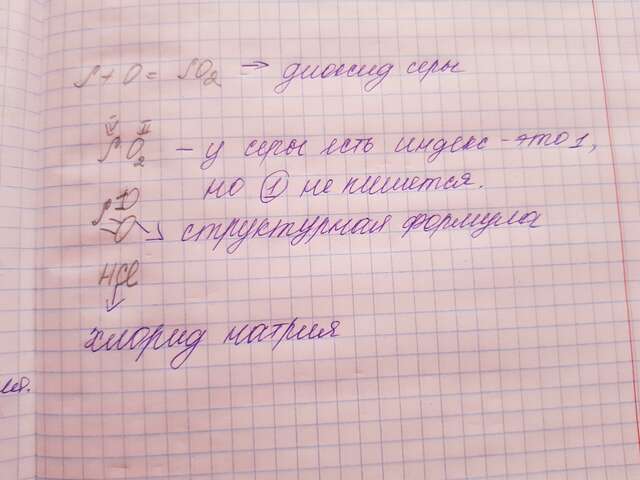 S + O = SO2 → диоксид серы
IV II
SO2 – у серы есть индекс – это 1,
но ① не пишется.
S=O
=O → структурная формула
HCl
↓
хлорид натрия
ия.